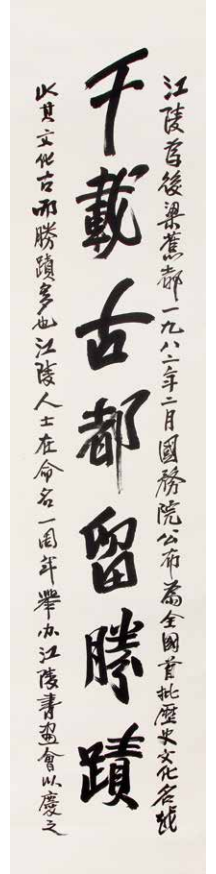 江陵為後梁舊都一九八二年二月國務院公布為全國首批歷史文化名城
千載古都留勝蹟
此其文化古而勝蹟多也江陵人士在命名一周年舉办江陵書畫會以慶之